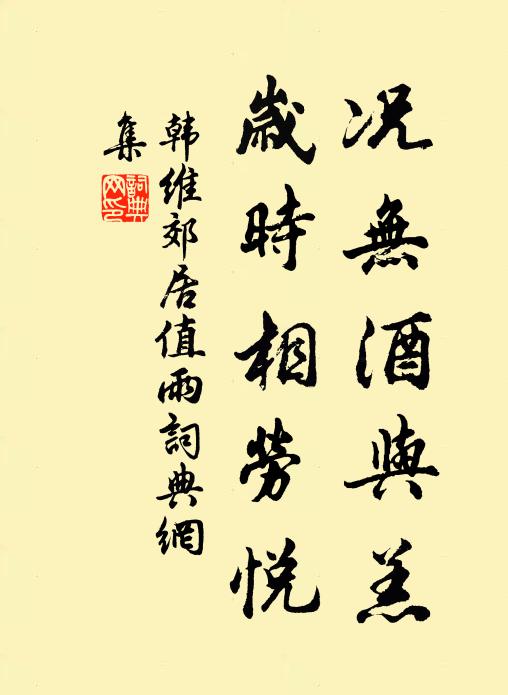 况無酒與羔
歲時相勞悅
韩維郊居值雨詞典網
集
詞典
网印